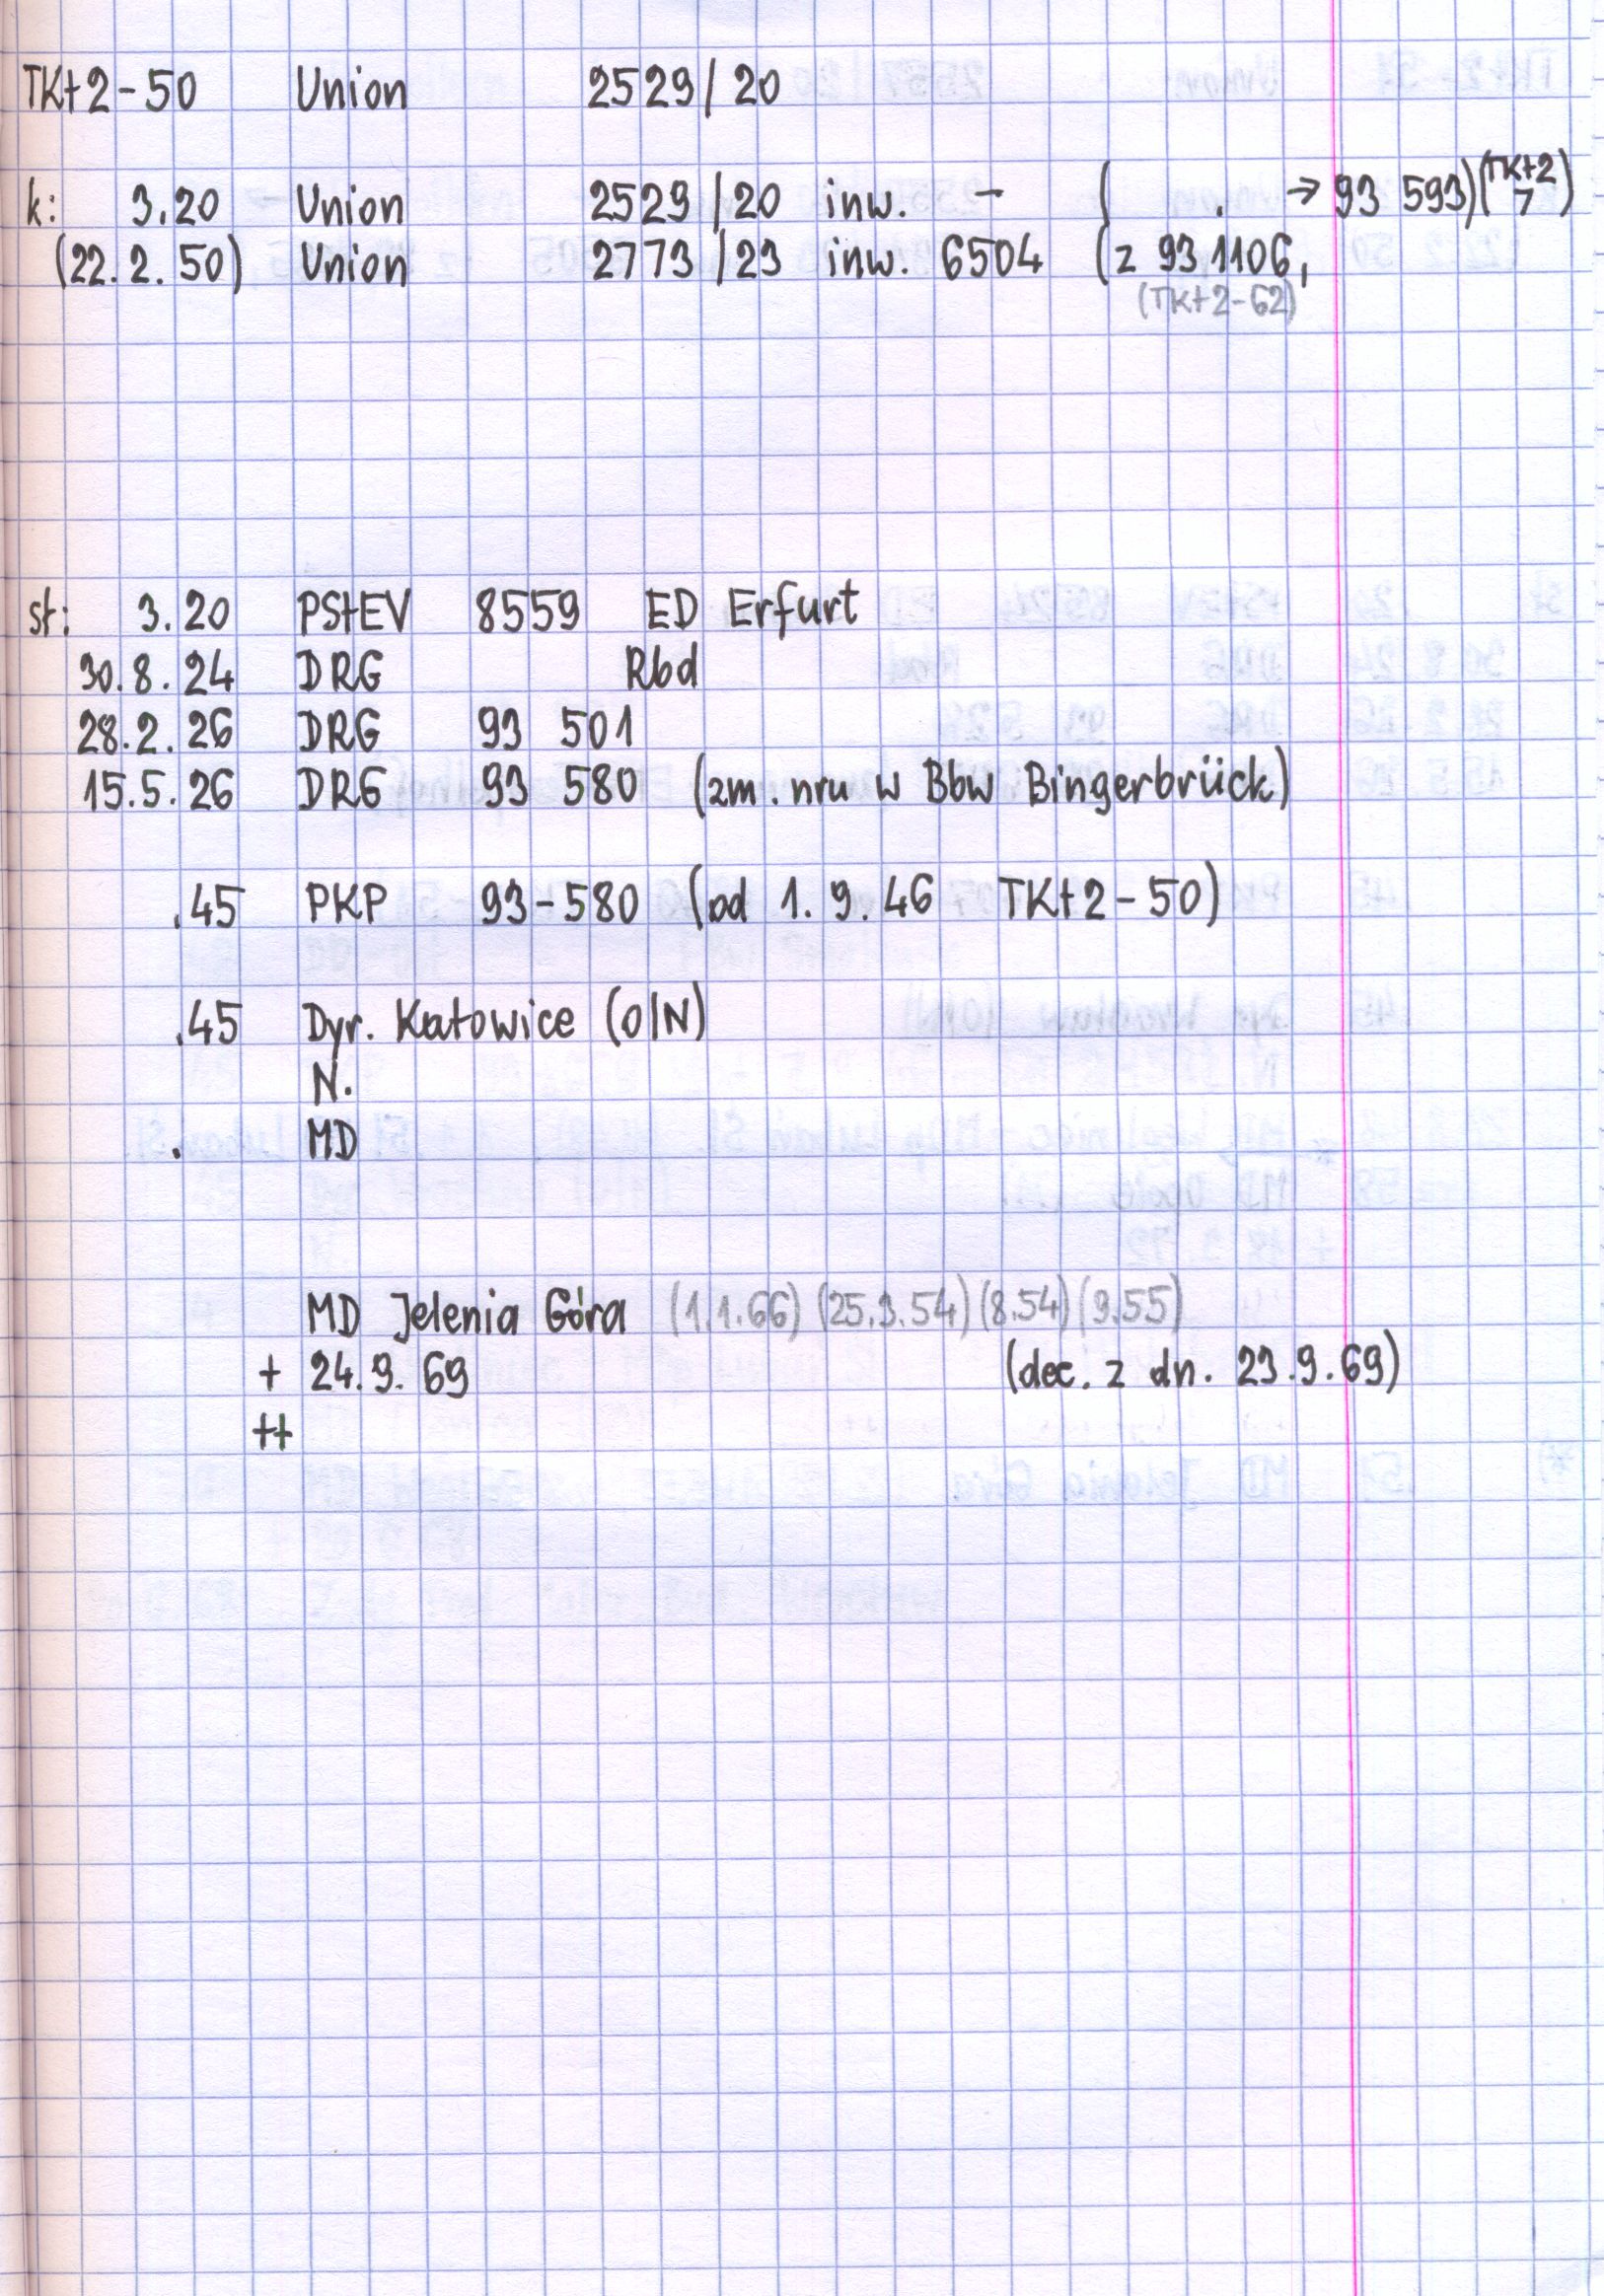 TKt2-50 Union 2529/20
k: 3.20 Union 2529/20 inw. - ( . → 93 593) (TKt2 7)
(22.2.50) Union 2773/23 inw. 6504 (z 93 1106,
(TKt2-62)
st: 3.20 PStEV 8559 ED Erfurt
30.8.24 DRG Rbd
28.2.26 DRG 93 501
15.5.26 DRG 93 580 (zm. nru w Bbw Bingerbrück)
.45 PKP 93-580 (od 1.9.46 TKt2-50)
.45 Dyr. Katowice (O/N)
N.
. MD
MD Jelenia Góra (1.1.66) (25.3.54) (8.54) (9.55)
+ 24.9.69 (dec. z dn. 23.9.69)
++